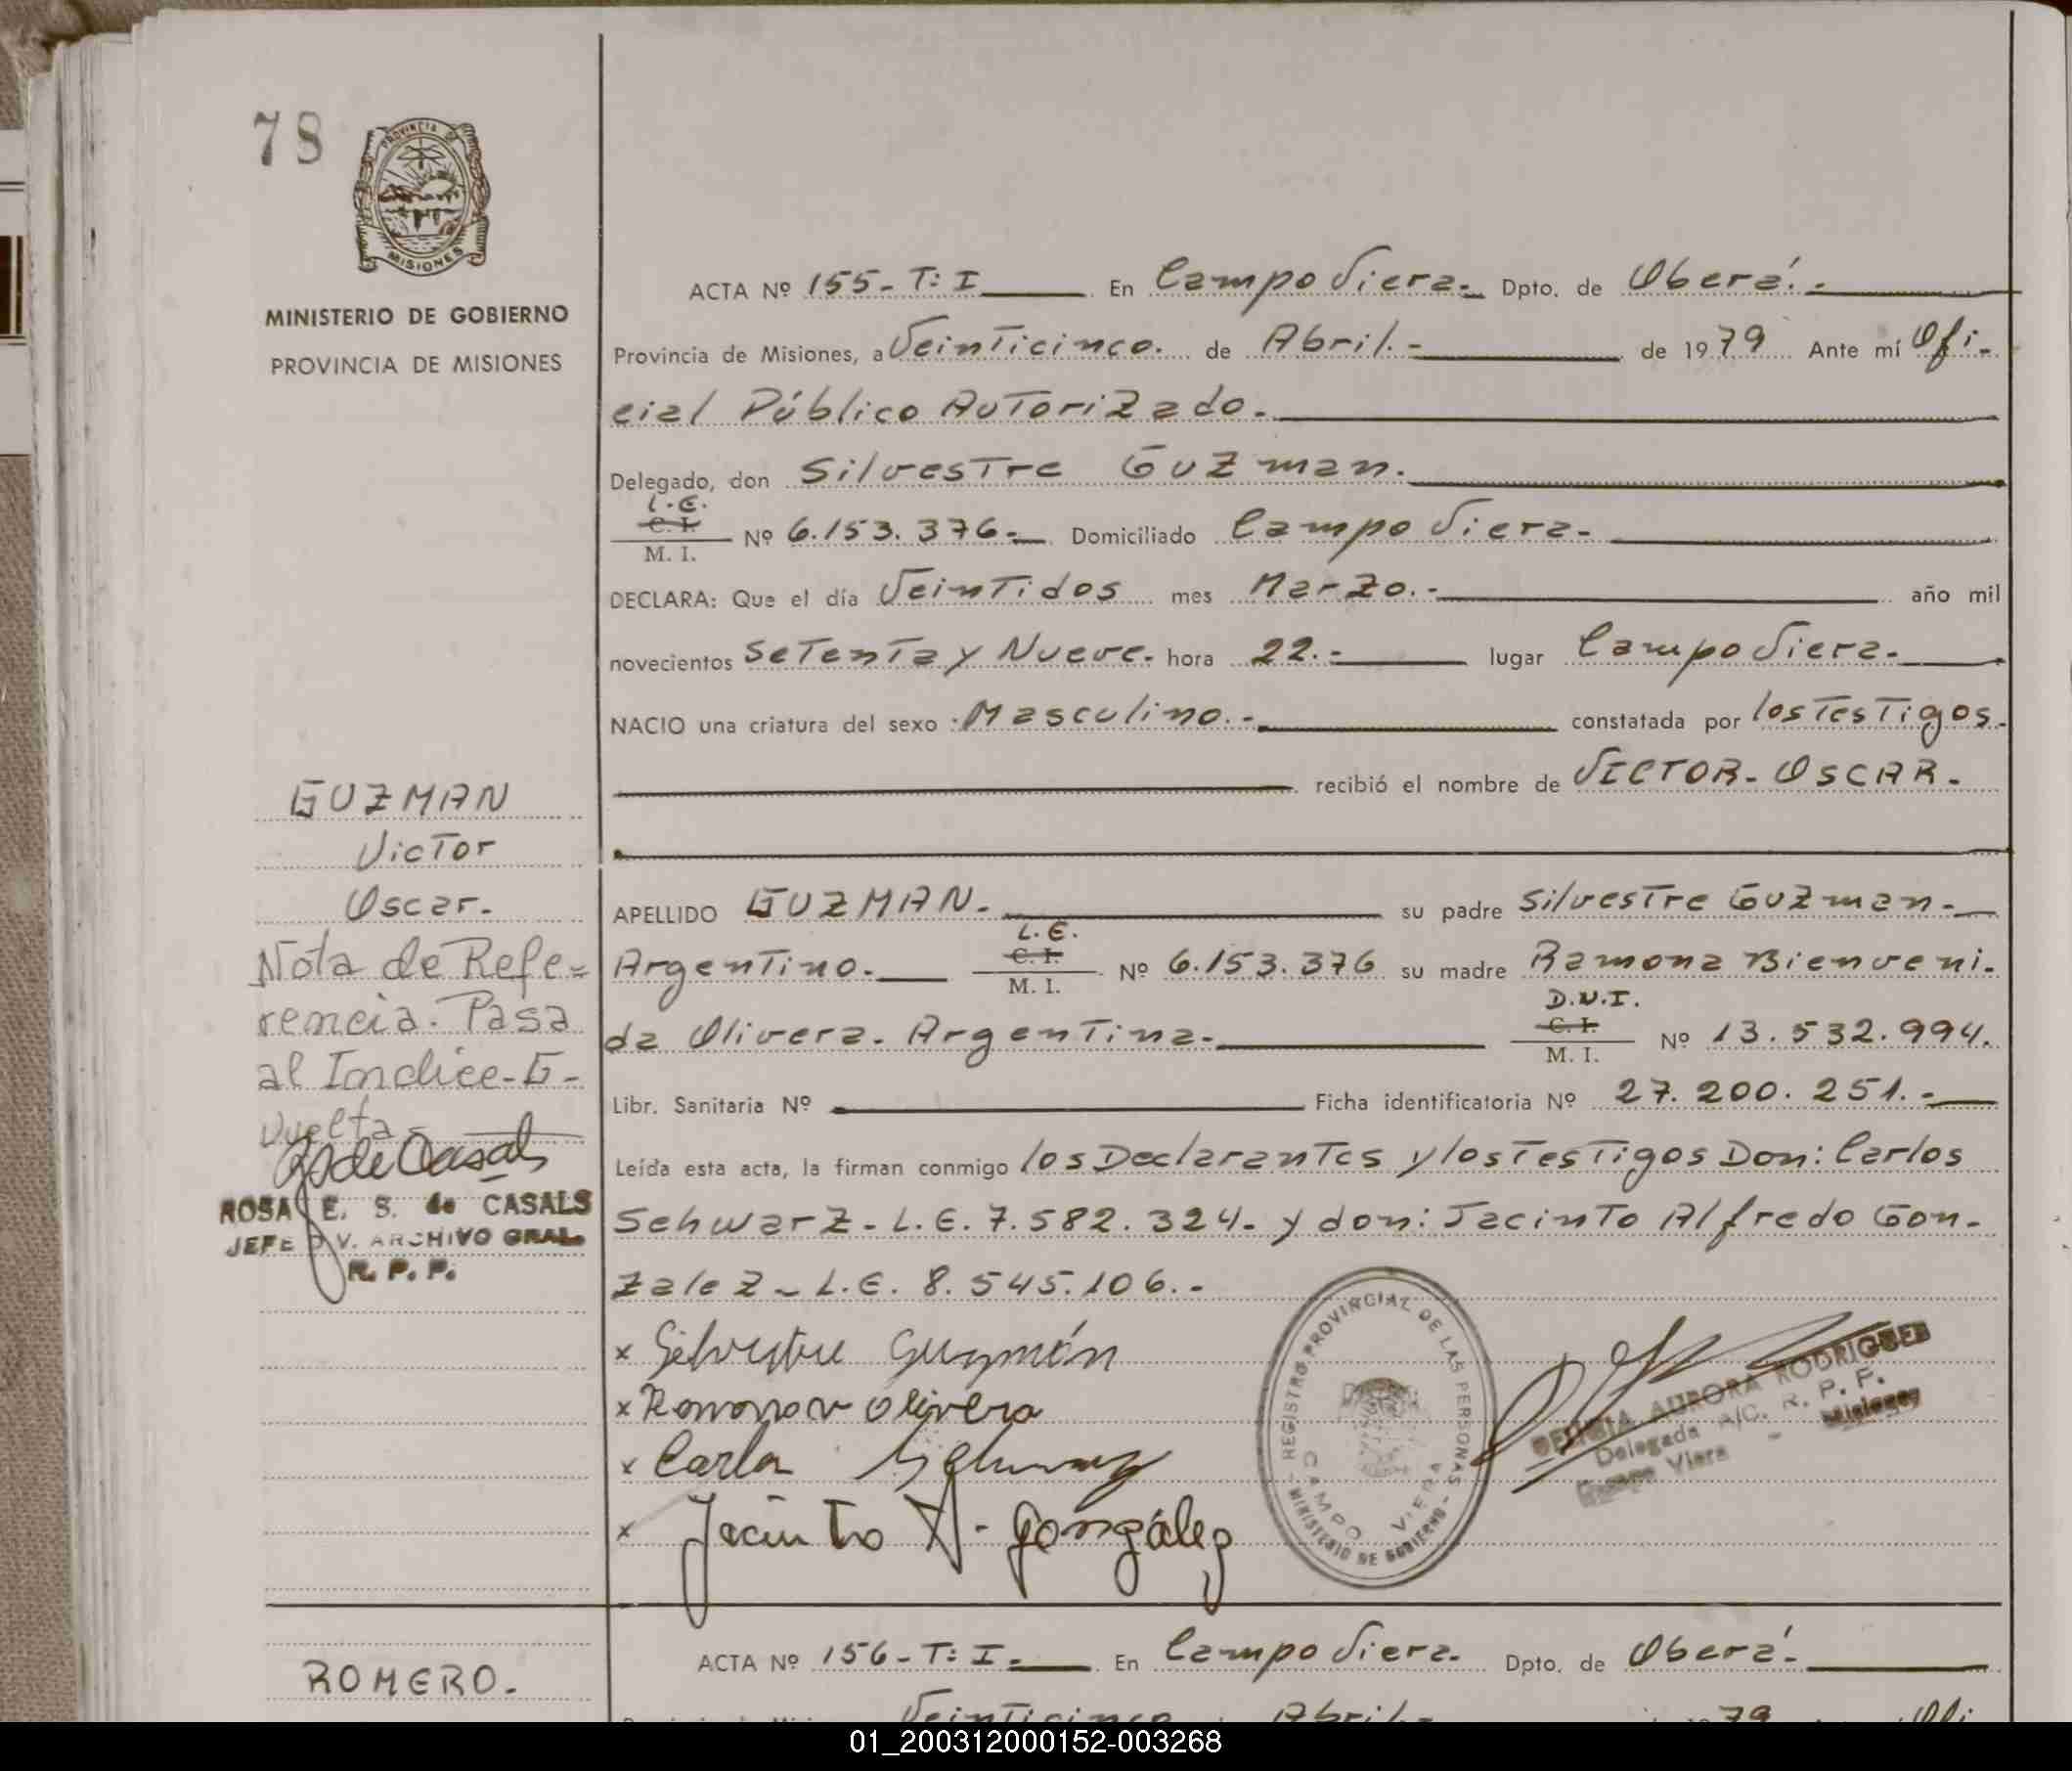 78
PROVINCIA DE
MISIONES
MINISTERIO DE GOBIERNO
PROVINCIA DE MISIONES
ACTA Nº 155-T: I En Campo Viera.- Dpto. de Oberá.-
Provincia de Misiones, a Veinticinco. de Abril.- de 1979 Ante mí Ofi-
cial Público Autorizado.
Delegado, don Silvestre Guzman.
L.E.
C. I.
M. I.
Nº 6.153.376.- Domiciliado Campo Viera.
DECLARA: Que el día Veintidos mes Marzo.- año mil
novecientos Setenta y Nueve. hora 22.- lugar Campo Viera.
NACIO una criatura del sexo : Masculino.- constatada por los Testigos.
recibió el nombre de VICTOR- OSCAR.
GUZMAN
Victor
Oscar.
APELLIDO GUZMAN. su padre Silvestre Guzman.
Argentino. L.E. C. I. M. I. Nº 6.153.376 su madre Ramona Bienveni-
da Olivera. Argentina. D.N.I. C. I. M. I. Nº 13.532.994.
Libr. Sanitaria Nº Ficha identificatoria Nº 27.200.251.-
Leída esta acta, la firman conmigo los Declarantes y los Testigos Don: Carlos
Schwarz- L.E. 7.582.324- y don: Jacinto Alfredo Gon-
zalez- L.E. 8.545.106.-
Nota de Refe=
rencia. Pasa
al Indice-G-
vuelta-
R de Casals
ROSA E. S. de CASALS
JEFE DIV. ARCHIVO GRAL.
R. P. P.
x Silvestre Guzmán
x Ramona Olivera
x Carlos Schwarz
x Jacinto A- González
REGISTRO PROVINCIAL DE LAS PERSONAS
MINISTERIO DE GOBIERNO
CAMPO VIERA
AURORA RODRIGUEZ
Delegada A/C. R. P. P.
Campo Viera - Misiones
ACTA Nº 156-T: I. En Campo Viera. Dpto. de Oberá.
ROMERO.
Veinticinco Abril.- 79 Ofi
01_200312000152-003268